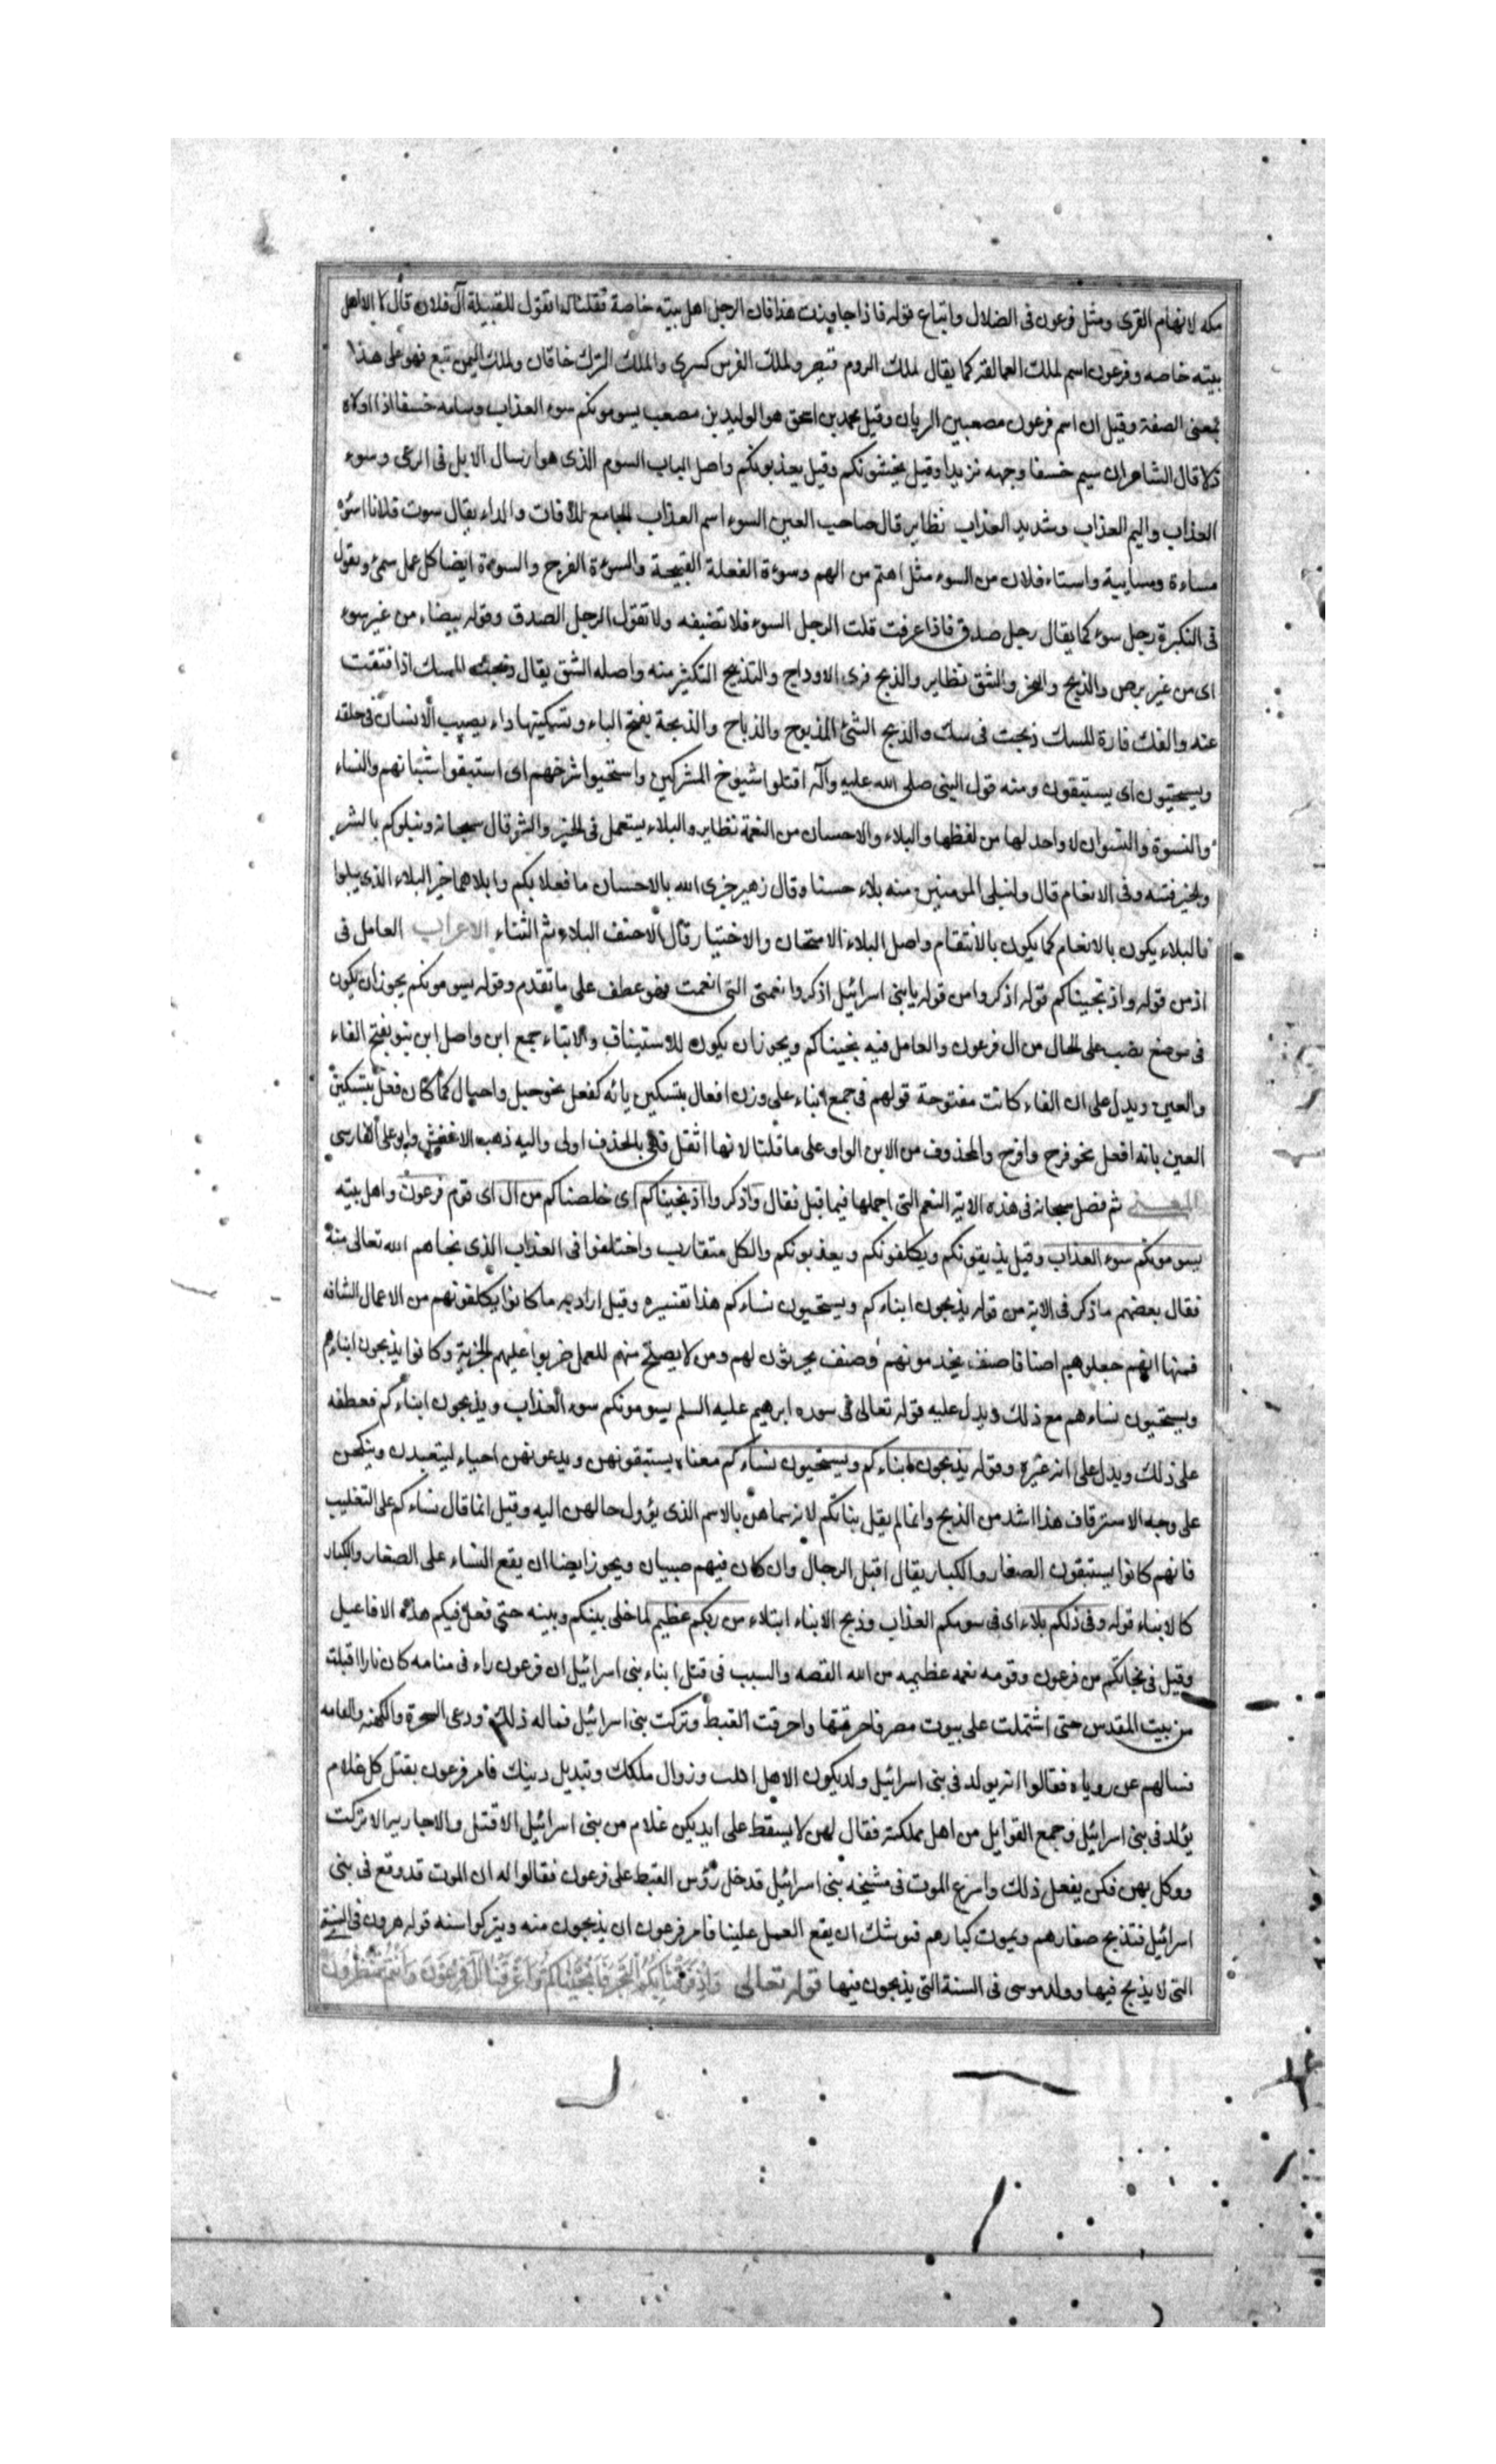 مكه لانهام القرى ومثل فرعون فى الضلال واتباع قوله فاذا جاوزت هذا فان الرجل اهل بيته خاصة فقلنا له انقول للقبيلة آل فلان قال لا الا اهل
بيته خاصه وفرعون اسم لملك العمالقه كما يقال لملك الروم قيصر ولملك الفرس كسرى والملك الترك خاقان ولملك اليمن تبع فهو على هذا
بمعنى الصفة وقيل ان اسم فرعون مصعب بن الريان وقيل محمد بن اسحق هو الوليد بن مصعب يسومونكم سوء العذاب وسامه خسفا اذا اولاه
ذلا قال الشاعر ان سيم خسفا وجهه تزبدا وقيل يخشونكم وقيل يعذبونكم واصل الباب السوم الذى هو ارسال الابل فى الرعى وسوء
العذاب واليم العذاب وشديد العذاب نظاير قال صاحب العين السوء اسم العذاب الجامع للافات والداء يقال سوت فلانا اسوه
مساءة ومسايية واستاء فلان من السوء مثل اهتم من الهم وسوءة الفعلة القبيحة والسوءة الفرج والسوءة ايضا كل عمل سمئ وبقول
فى النكرة رجل سوء كما يقال رجل صدق فاذا عرفت قلت الرجل السوء فلا تضيفه ولا تقول الرجل الصدق وقوله بيضاء من غير سوء
اى من غير برص والذبح والنحر والشق نظاير والذبح فرى الاوداج والتذبيح التكثير منه واصله الشق يقال ذبحت المسك اذا فتقت
عنه والفك فارة المسك ذبحت فى سك والذبح الشئ المذبوح والذباح والذبحة بفتح الباء وتسكينها داء يصيب الانسان فى حلقه
ويستحيون اى يستبقون ومنه قول النبى صلى الله عليه وآله اقتلوا شيوخ المشركين واستحيوا شرخهم اى استبقوا شبانهم والنساء
والنسوة والنسوان لا واحد لها من لفظها والبلاء والاحسان من النعمة نظاير والبلاء يستعمل فى الخير والشر قال سبحانه ونبلوكم بالشر
والخير فتنه وفى الانعام قال وليبلى المومنين منه بلاء حسنا وقال زهير جزى الله بالاحسان ما فعلا بكم وابلاهما خير البلاء الذى يبلوا
فالبلاء يكون بالانعام كما يكون بالانتقام واصل البلاء الامتحان والاختيار قال الاحنف البلاء ثم الثناء الاعراب العامل فى
اذ من قوله واذ نجيناكم قوله اذكروا من قوله يا بنى اسرائيل اذكروا نعمتى التى انعمت فهو عطف على ما تقدم وقوله يسومونكم يجوز ان يكون
فى موضع نصب على الحال من ال فرعون والعامل فيه نجيناكم ويجوز ان يكون للاستيناف والابناء جمع ابن واصل ابن بنو بفتح الفاء
والعين ويدل على ان الفاء كانت مفتوحة قولهم فى جمع ابناء على وزن افعال بتسكين يائه كفعل نحو حبل واحبال كما كان فعل بتسكين
العين بانه افعل نحو فرح وافرح والمحذوف من الابن الواو على ما قلنا لانها اثقل فهى بالحذف اولى واليه ذهب الاخفش وابو على الفارسى
المعنى ثم فصل سبحانه فى هذه الاية النعم التى اجملها فيما قبل فقال واذكروا اذ نجيناكم اى خلصناكم من ال اى قوم فرعون واهل بيته
يسومونكم سوء العذاب وقيل يذيقونكم ويكلفونكم ويعذبونكم والكل متقارب واختلفوا فى العذاب الذى نجاهم الله تعالى منه
فقال بعضهم ما ذكر فى الاية من قوله يذبحون ابناءكم ويستحيون نساءكم هذا تفسيره وقيل اراد به ما كانوا يكلفونهم من الاعمال الشاقه
فمنها انهم جعلوهم اصنافا صنف يخدمونهم وصنف يحرثون لهم ومن لا يصلح منهم للعمل ضربوا عليهم الجزية وكانوا يذبحون ابناءهم
ويستحيون نساءهم مع ذلك ويدل عليه قوله تعالى فى سوره ابرهيم عليه السلم يسومونكم سوء العذاب ويذبحون ابناءكم فعطفه
على ذلك ويدل على انه غيره وقوله يذبحون ابناءكم ويستحيون نساءكم معناه يستبقونهن ويدعونهن احياء ليتعبدن وينكحن
على وجه الاسترقاف هذا اشد من الذبح وانما لم يقل بناتكم لانه سماهن بالاسم الذى يؤول حالهن اليه وقيل انما قال نساءكم على التغليب
فانهم كانوا يستبقون الصغار والكبار يقال اقبل الرجال وان كان فيهم صبيان ويجوز ايضا ان يقع النساء على الصغار والكبار
كالابناء قوله وفى ذلكم بلاء اى فى سومكم العذاب وذبح الابناء ابتلاء من ربكم عظيم لما خلى بينكم وبينه حتى فعل فيكم هذه الافاعيل
وقيل فى نجاتكم من فرعون وقومه نعمه عظيمه من الله القصه والسبب فى قتل ابناء بنى اسرائيل ان فرعون راء فى منامه كان نارا اقبلت
من بيت المقدس حتى اشتملت على بيوت مصر فاحرقتها واحرقت القبط وتركت بنى اسرائيل فهاله ذلك ودعى السحرة والكهنه والقافه
فسالهم عن روياه فقالوا انه يولد فى بنى اسرائيل ولد يكون الاهل اهلب وزوال ملكك وتبديل دينك فامر فرعون بقتل كل غلام
يولد فى بنى اسرائيل وجمع القوابل من اهل مملكته فقال لهن لا يسقط على ايديكن غلام من بنى اسرائيل الا قتل ولا جاريه الا تركت
ووكل بهن فكن يفعل ذلك واسرع الموت فى مشيخه بنى اسرائيل فدخل رؤس القبط على فرعون فقالوا له ان الموت قد وقع فى بنى
اسرائيل فتذبح صغارهم ويموت كبارهم فيوشك ان يقع العمل علينا فامر فرعون ان يذبحون منه ويتركوا سنه قوله هرون فى السنة
التى لا يذبح فيها وولد موسى فى السنة التى يذبحون فيها قوله تعالى وَاِذْ فَرَقْنَا بِكُمُ الْبَحْرَ فَاَنْجَيْنَاكُمْ وَاَغْرَقْنَا آلَ فِرْعَوْنَ وَاَنْتُمْ تَنْظُرُونَ